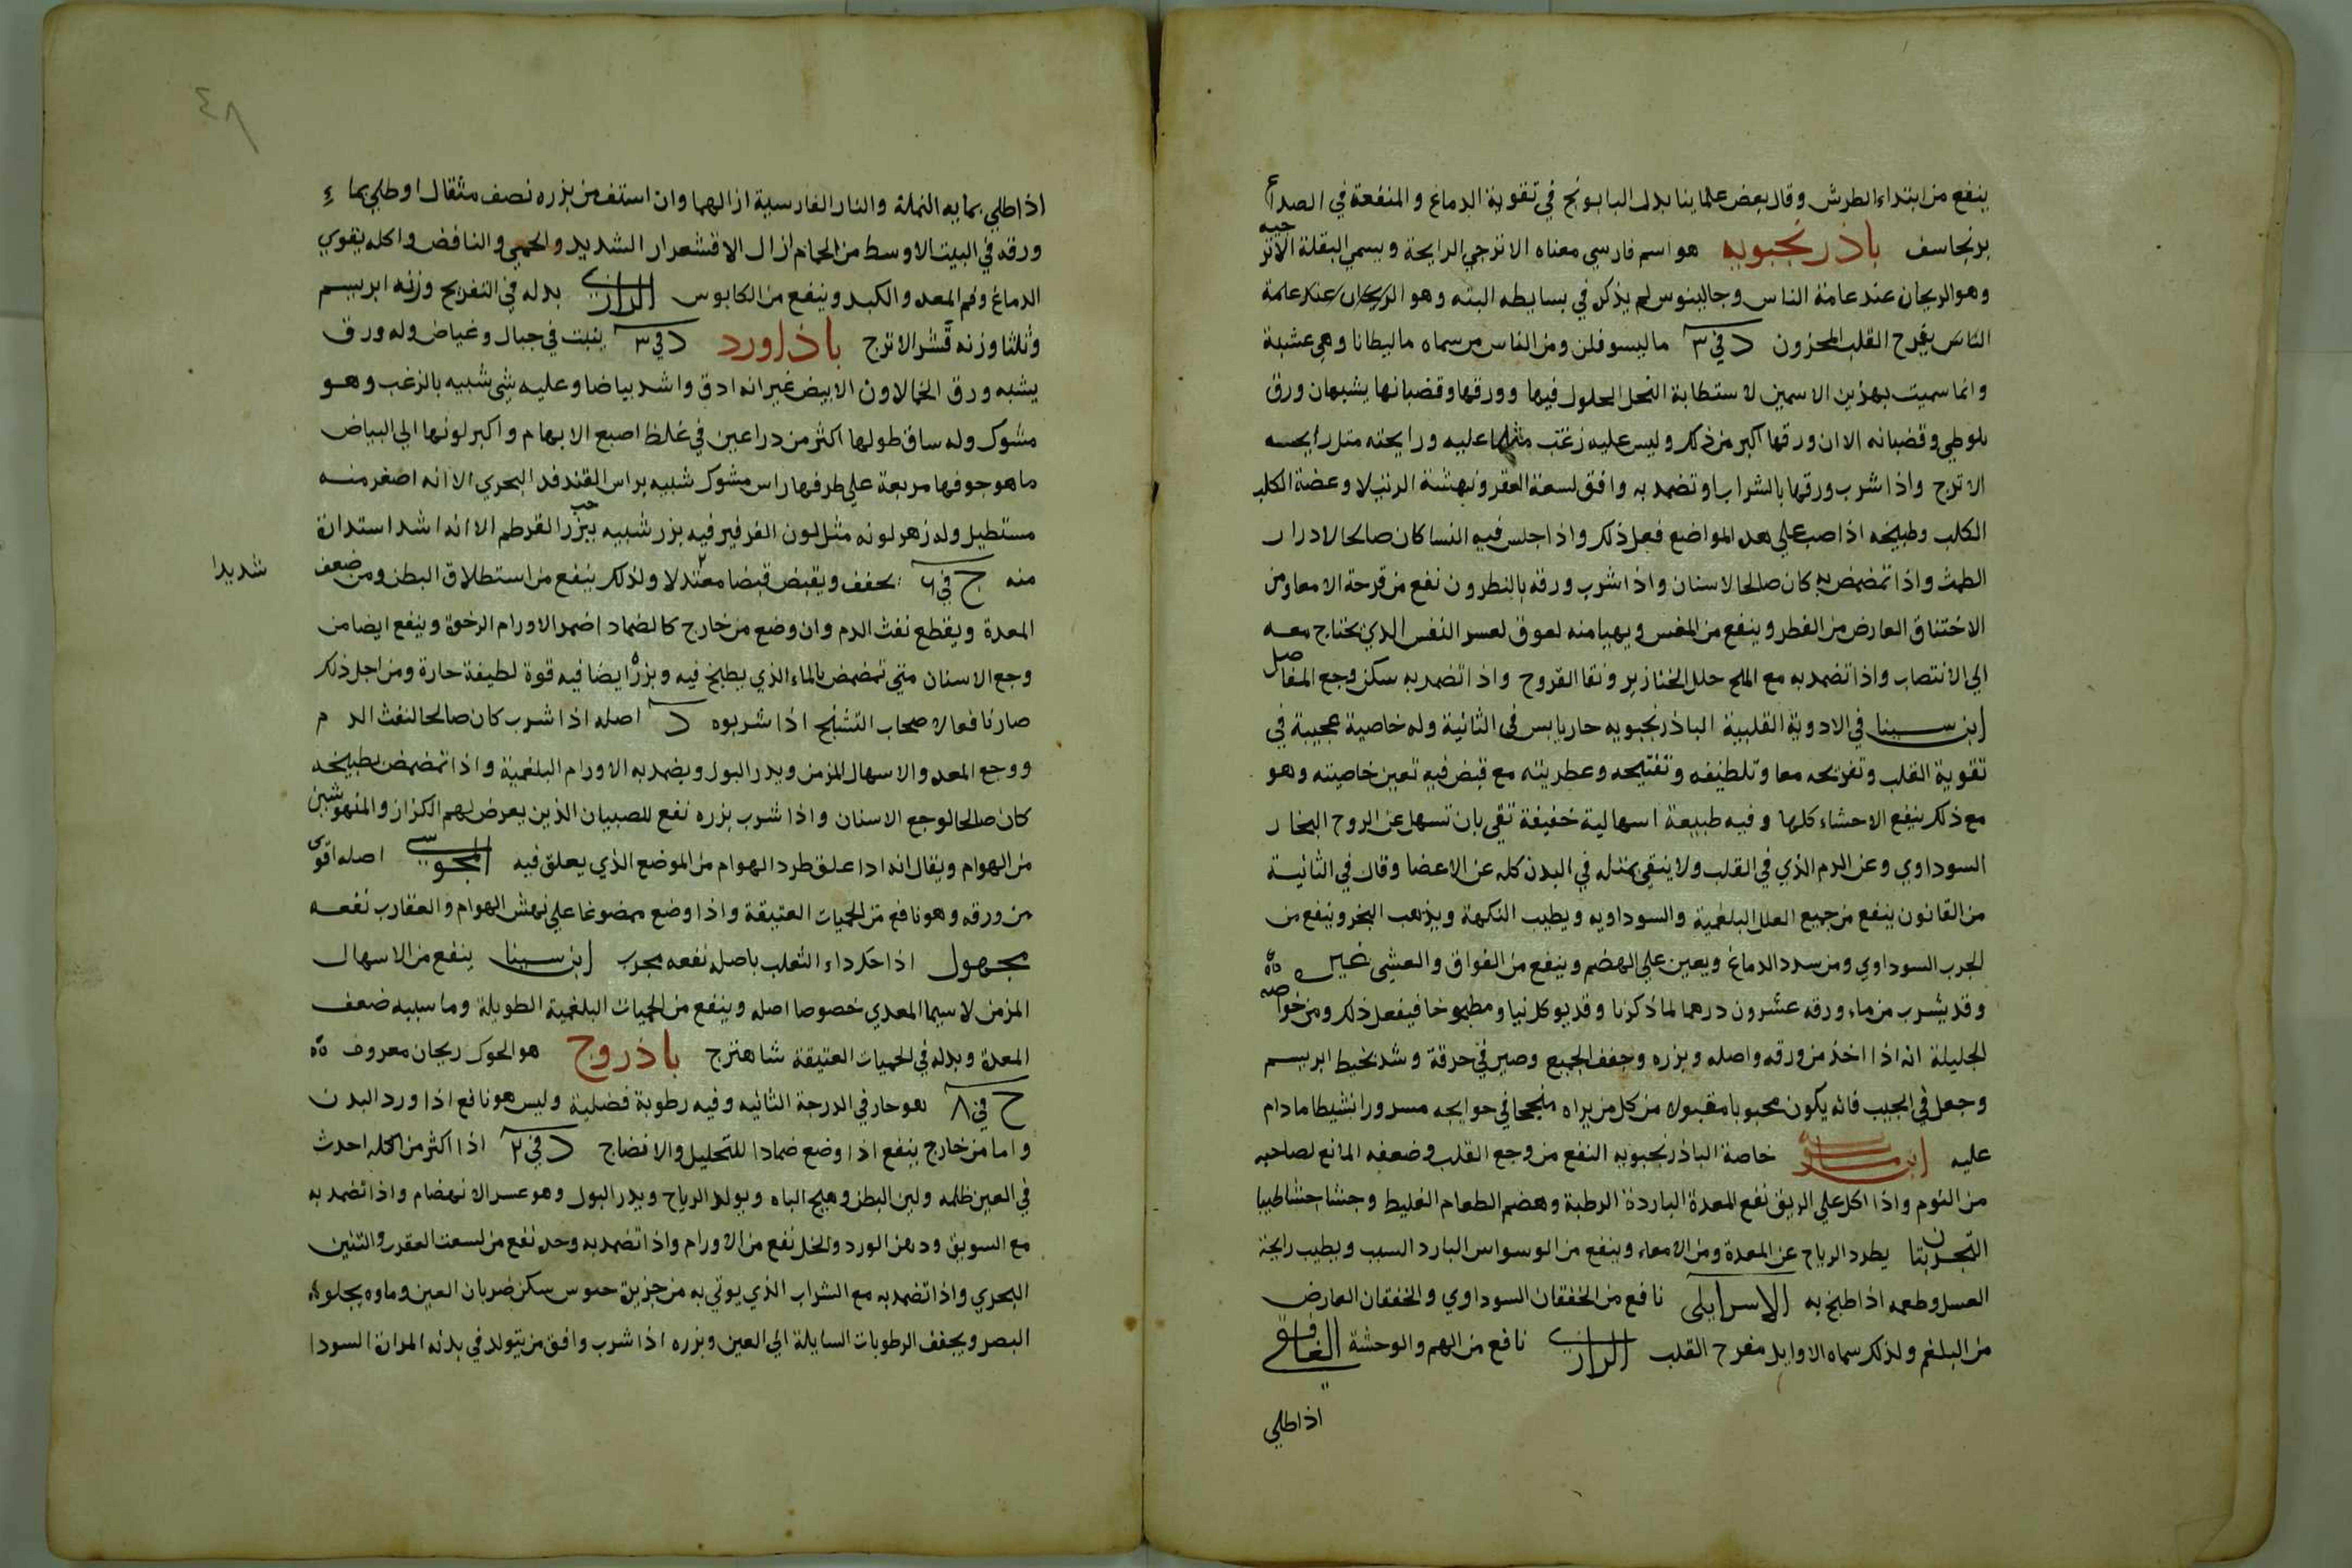 ينفع من ابتداء الطرش وقال بعض علماينا بدل البابونج في تقوية الدماغ والمنفعة في الصداع
برنجاسف باذرنجبويه هو اسم فارسي معناه الاترجي الرايحة ويسمي البقلة الاترجيه
وهو الريحان عند عامة الناس وجالينوس لم يذكره في بسايطه البته وهو الريحان عند عامة
الناس يفرح القلب المحزون د في ٣ ماليسوفلن ومن الناس من سماه ماليطانا وهي عشبة
وانما سميت بهذين الاسمين لاستطابة النحل الحلول فيها وورقها وقضبانها يشبهان ورق
بلوطي وقضبانه الا ان ورقها اكبر من ذلك وليس عليه زغب مثلما عليه ورايحته مثل رايحه
الاترج واذا شرب ورقها بالشراب او تضمد به وافق لسعة العقرب ونهشة الرتيلا وعضة الكلب
الكلب وطبيخه اذا صب علي هده المواضع فعل ذلك واذا جلس فيه النسا كان صالحا لادرار
الطمث واذا تمضمض به كان صالحا لاسنان واذا شرب ورقه بالنطرون نفع من قرحة الامعا ومن
الاختناق العارض من الفطر وينفع من المغس ويهيا منه لعوق لعسر النفس الذي يحتاج معه
الي الانتصاب واذا تضمد به مع الملح حلل الخنازير ونقا القروح واذا تضمد به سكن وجع المفاصل
ابن سينا في الادوية القلبية الباذرنجبويه حار يابس في الثانية وله خاصية عجيبة في
تقوية القلب وتفريحه معا وتلطيفه وتفتيحه وعطريته مع قبض فيه تعين خاصيته وهو
مع ذلك ينفع الاحشاء كلها وفيه طبيعة اسهالية خفيفة تقي بان تسهل عن الروح البخار
السوداوي وعن الدم الذي في القلب ولا ينقي بمثله في البدن كله عن الاعضا وقال في الثانية
من القانون ينفع من جميع العلل البلغمية والسوداويه ويطيب النكهة ويذهب البخر وينفع من
الجرب السوداوي ومن سدد الدماغ ويعين علي الهضم وينفع من الفواق والغشي غيره
وقد يشرب من ماء ورقه عشرون درهما لما ذكرنا وقد يوكل نيا ومطبوخا فيفعل ذلك ومن خواصه
الجليلة انه اذا اخذ من ورقه واصله وبزره وجفف الجميع وصير في خرقة وشد بخيط ابريسم
وجعل في الجيب فانه يكون محبوبا مقبولا من كل من يراه منجحا في حوايجه مسرورا نشيطا ما دام
عليه خاصة الباذرنجبويه النفع من وجع القلب وضعفه المانع لصاحبه
من النوم واذا اكل علي الريق نفع المعدة الباردة الرطبة وهضم الطعام الغليظ وجشا جشا طيبا
التجربتان يطرد الرياح عن المعدة ومن الامعاء وينفع من الوسواس البارد السبب ويطيب رايحة
العسل وطعمه اذا طبخ به الاسرايلي نافع من الخفقان السوداوي والخفقان العارض
من البلغم ولذلك سماه الاوايل مفرح القلب الرازي نافع من الهم والوحشة الغافقي
اذا طلي
٤٨
اذا طلي بمايه النملة والنار الفارسية ازالهما وان استف من بزره نصف مثقال او طلي بماء
ورقه في البيت الاوسط من الحمام ازال الاقشعرار الشديد والحمي والنافض واكله يقوي
الدماغ وفم المعده والكبد وينفع من الكابوس الرازي بدله في التفريح وزنه ابريسم
وثلثا وزنه قشر الاترج باذاورد د في ٣ ينبت في جبال وغياض وله ورق
يشبه ورق الخمالاون الابيض غير انه ادق واشد بياضا وعليه شي شبيه بالزغب وهو
مشوك وله ساق طولها اكثر من دراعين في غلظ اصبع الابهام واكبر لونها الي البياض
ما هو جوفها مربعة علي طرفها راس مشوك شبيه براس القنفد البحري الا انه اصغر منه
مستطيل وله زهر لونه مثل لون الفرفير فيه بزر شبيه ببزر حب القرطم الا انه اشد استدارة
منه ج في ٦ يجفف ويقبض قبضا معتدلا ولذلك ينفع من استطلاق البطن ومن ضعف
شديدا
المعدة ويقطع نفث الدم وان وضع من خارج كالضماد اضمر الاورام الرخوة وينفع ايضا من
وجع الاسنان متي تمضمض بالماء الذي يطبخ فيه وبزره ايضا فيه قوة لطيفة حارة ومن اجل ذلك
صار نافعا لاصحاب التشنج اذا شربوه د اصله اذا شرب كان صالحا لنفث الدم
ووجع المعده والاسهال المزمن ويدر البول ويضمد به الاورام البلغمية واذا تمضمض بطبيخه
كان صالحا لوجع الاسنان واذا شرب بزره نفع للصبيان الذين يعرض لهم الكزاز والمنهوشين
من الهوام ويقال انه ادا علق طرد الهوام من الموضع الذي يعلق فيه المجوسي اصله اقوي
من ورقه وهو نافع من الحميات العتيقة واذا وضع ممضوغا علي نهش الهوام والعقارب نفعه
مجهول اذا حك داء الثعلب باصله نفعه مجرب ابن سينا ينفع من الاسهال
المزمن لاسيما المعدي خصوصا اصله وينفع من الحميات البلغمية الطويلة وما سببه ضعف
المعدة وبدله في الحميات العتيقة شاهترج باذروج هو الحوك ريحان معروف
ج في ٨ هو حار في الدرجة الثانيه وفيه رطوبة فضلية وليس هو نافع اذا ورد البدن
واما من خارج ينفع اذا وضع ضمادا للتحليل والانضاج د في ٢ اذا اكثر من اكله احدث
في العين ظلمه ولين البطن وهيج الباه ويولد الرياح ويدر البول وهو عسر الانهضام واذا تضمد به
مع السويق ودهن الورد والخل نفع من الاورام واذا تضمد به وحده نفع من لسعت العقرب والتنين
البحري واذا تضمد به مع الشراب الذي يوتي به من جزيرة سكن ضربان العين وماوه يجلو
البصر ويجفف الرطوبات السايلة الي العين وبزره اذا شرب وافق من يتولد في بدنه المرة السودا